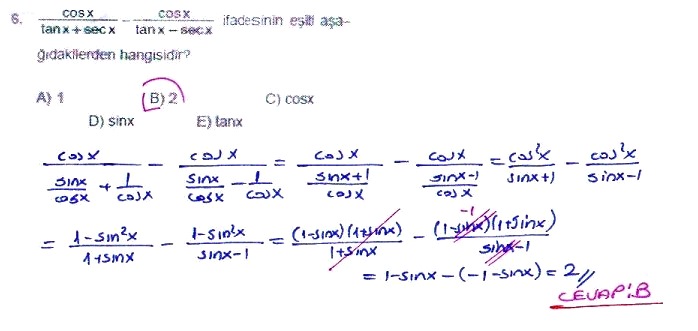 6. cosx/(tanx+secx) − cosx/(tanx−secx) ifadesinin eşiti aşa–
ğıdakilerden hangisidir?
A) 1 B) 2 C) cosx
D) sinx E) tanx
cosx/(sinx/cosx + 1/cosx) − cosx/(sinx/cosx − 1/cosx) = cosx/((sinx+1)/cosx) − cosx/((sinx−1)/cosx) = cos²x/(sinx+1) − cos²x/(sinx−1)
= (1−sin²x)/(1+sinx) − (1−sin²x)/(sinx−1) = (1−sinx)(1+sinx)/(1+sinx) − (1−sinx)(1+sinx)/(sinx−1) −1
= 1−sinx −(−1−sinx) = 2//
CEVAP:B